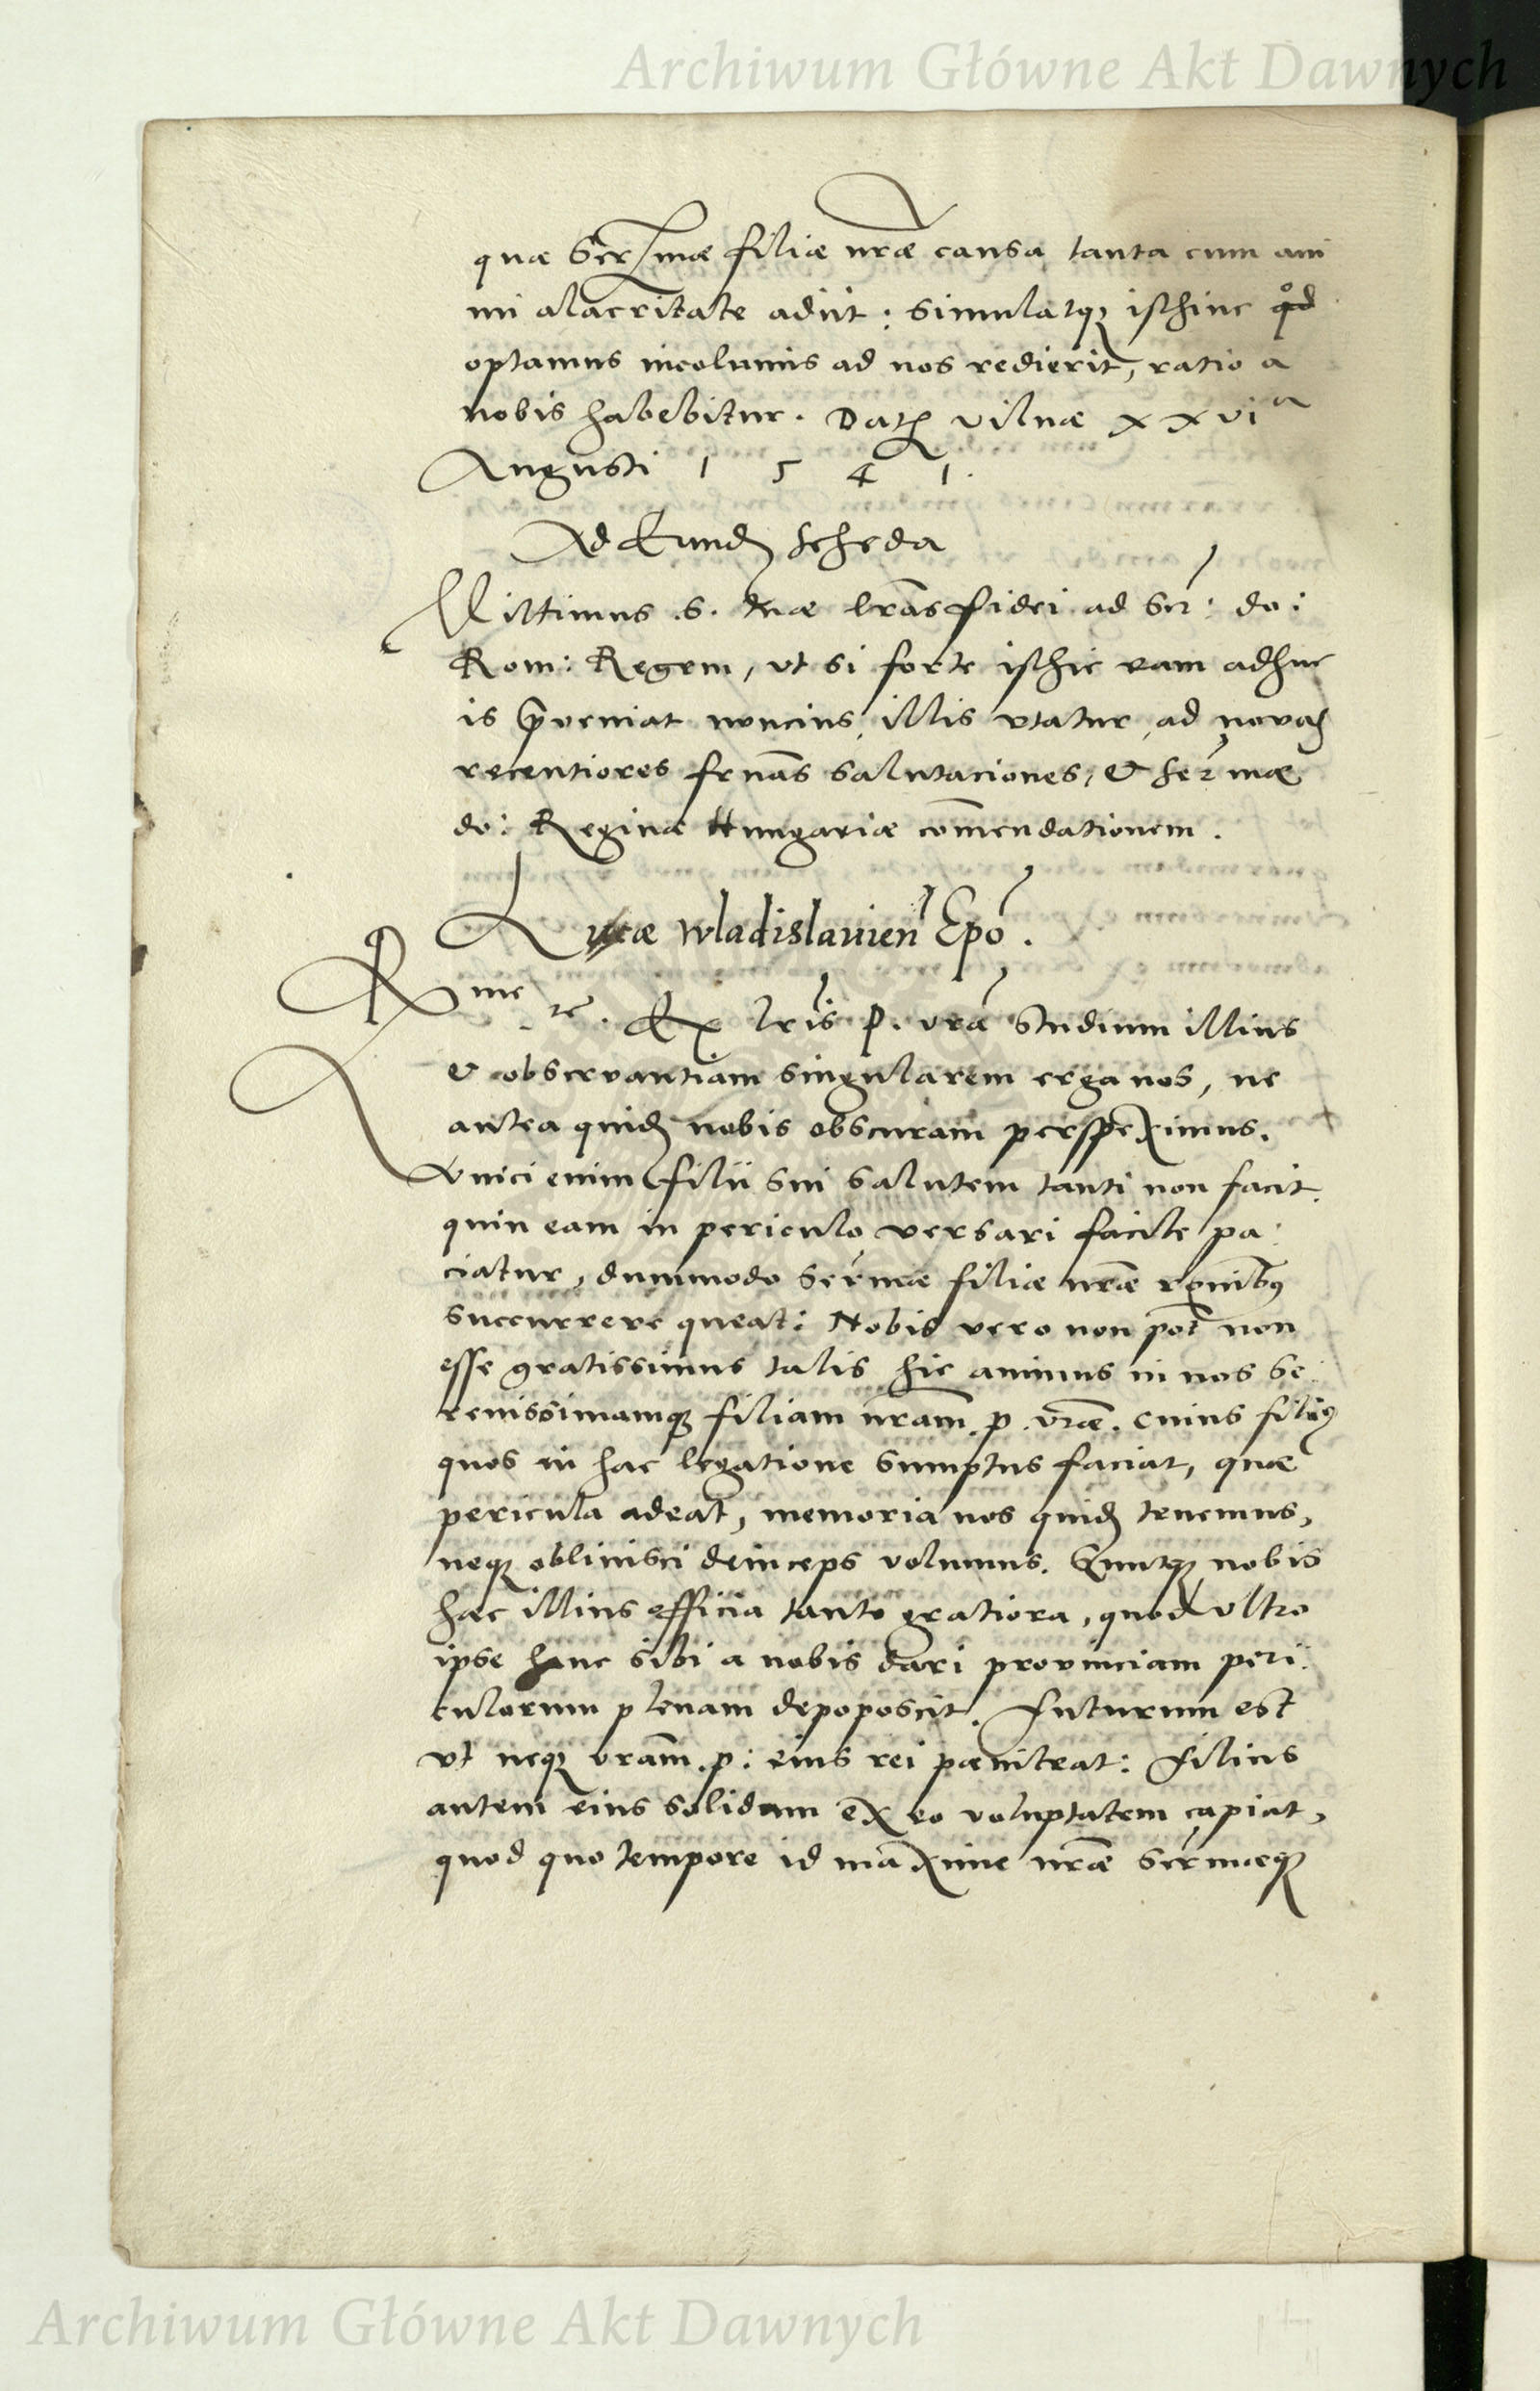 Archiwum Główne Akt Dawnych
quæ Ser/mæ filiæ nr̃æ causa tanta cum ani
mi alacritate adiit: simulatq; isthinc qd̊
optamus incolumis ad nos redierit, ratio a
nobis habebitur. Dat Vilnæ xxvi a
Augusti 1 5 4 1.
Ad Eund scheda
Mittimus S. tuæ lr̃as fidei ad Ser: do:
Rom: Regem, vt si forte isthic eam adhuc
is p̃veniat nuncius, illis vtatur, ad novas
recentiores salutaciones, & Ser mæ
do: Reginæ Hungariæ com̃endationem.
Lucæ Wladislavien Epõ.
R me re. Ex lr̃is P. vræ studium illius
& observantiam singularem erga nos, ne
antea quid nobis obscuram perspeximus.
Vnici enim filii sui salutem tanti non facit,
quin eam in periculo versari facile pa:
ciatur, dummodo Ser mæ filiæ nr̃æ rõnibq
succurrere queat: Nobis vero non pot̃ non
esse gratissimus talis hic animus in nos Se:
renissimamq; filiam nr̃am p. vr̃æ. cuius filius
quos in hac legatione sumptus faciat, quæ
pericula adeat, memoria nos quid tenemus,
neq; oblivisci deinceps volumus. Suntq; nobis
hæc illius officia tanto gratiora, quod vltro
ipse hanc sibi a nobis dari provinciam peri:
culorum plenam depoposcit. Futurum est
vt neq; vr̃am. p: eius rei pæniteat: Filius
autem eius solidam ex eo voluptatem capiat,
quod quo tempore id maxime nr̃æ Ser mæq;
Archiwum Główne Akt Dawnych